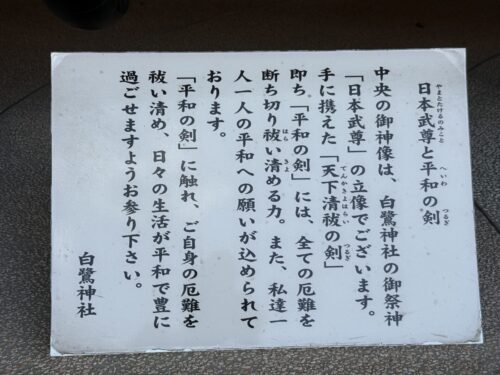 日本武尊と平和の剣
やまとたけるのみこと
へいわ
つるぎ
中央の御神像は、白鷺神社の御祭神
「日本武尊」の立像でございます。
手に携えた「天下清祓の剣」
てんかきよはらい
つるぎ
即ち「平和の剣」には、全ての厄難を
断ち切り祓い清める力。また、私達一
はら
きよ
人一人の平和への願いが込められて
おります。
「平和の剣」に触れ、ご自身の厄難を
祓い清め、日々の生活が平和で豊に
過ごせますようお参り下さい。
白鷺神社